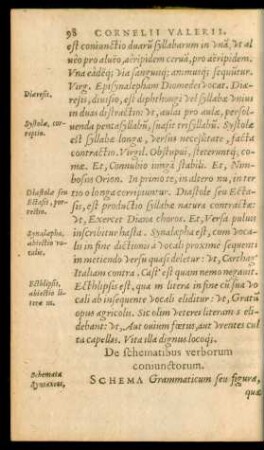 98 CORNELII VALERII.
est coniunctio duarũ syllabarum in vnã, vt al
uẽo pro aluẽo, aẽripidem cerva, pro aëripidem.
Vna eâdẽq; via sanguisq; animusq; sequũtur.
Virg. Episynalepham Diomedes vocat. Diæ-
resis, diuisio, est diphthongi vel syllabæ vnius
in duas distractio: vt, aulai pro aulæ, persol-
uenda pentasyllabũ, suasit trisyllabũ. Systole
est syllaba longa, versus necessitate, facta
contractio. Virgil. Obstupui, steteruntq́; co-
mæ. Et, Connubio iungã stabili. Et, Nim-
bosus Orion. In primo te, in altero nu, in ter
tio o longa corripiuntur. Diastole seu Ecta-
sis, est productio syllabæ natura contractæ:
vt, Exercet Diana choros. Et, Versa puluis
inscribitur hasta. Synalœpha est, cum voca-
lis in fine dictionis à vocali proximè sequenti
in metiendo versu quasi deletur: vt, Carthag'
Italiam contra. Cast' est quam nemo rogauit.
Ecthlipsis est, qua m litera in fine cũ sua vo
cali ab insequente vocali eliditur: vt, Gratũ
opus agricolis. Sic olim veteres literam s eli
debant: vt, Aut ouium fœtus, aut vrentes cul
ta capellas. Vita illa dignus locoq́;.
De schematibus verborum
coniunctorum.
SCHEMA Grammaticum seu figura,
quæ
Diæresis.
Systole, cor-
reptio.
Diastole seu
Ectasis, por-
rectio.
Synalœpha,
abiectio vo-
calis.
Ecthlipsis,
abiectio li-
teræ m.
Schemata
Syntaxeos,